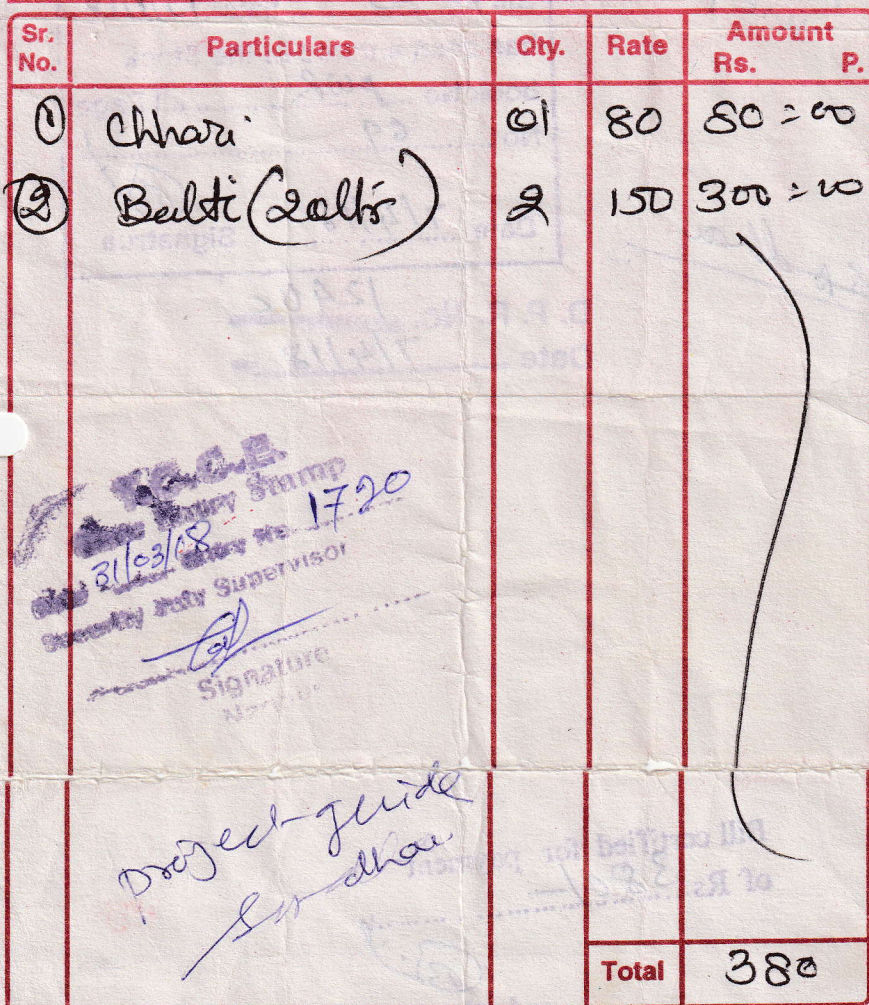 Sr. No. Particulars Qty. Rate Amount Rs. P.
① Chhari 01 80 80=00
② Balti (20ltrs) 2 150 300=00
Y.C.C.E.
Entry Stamp
31/03/18 Entry No. 1720
Security Duty Supervisor
Signature
project-guide
Total 380